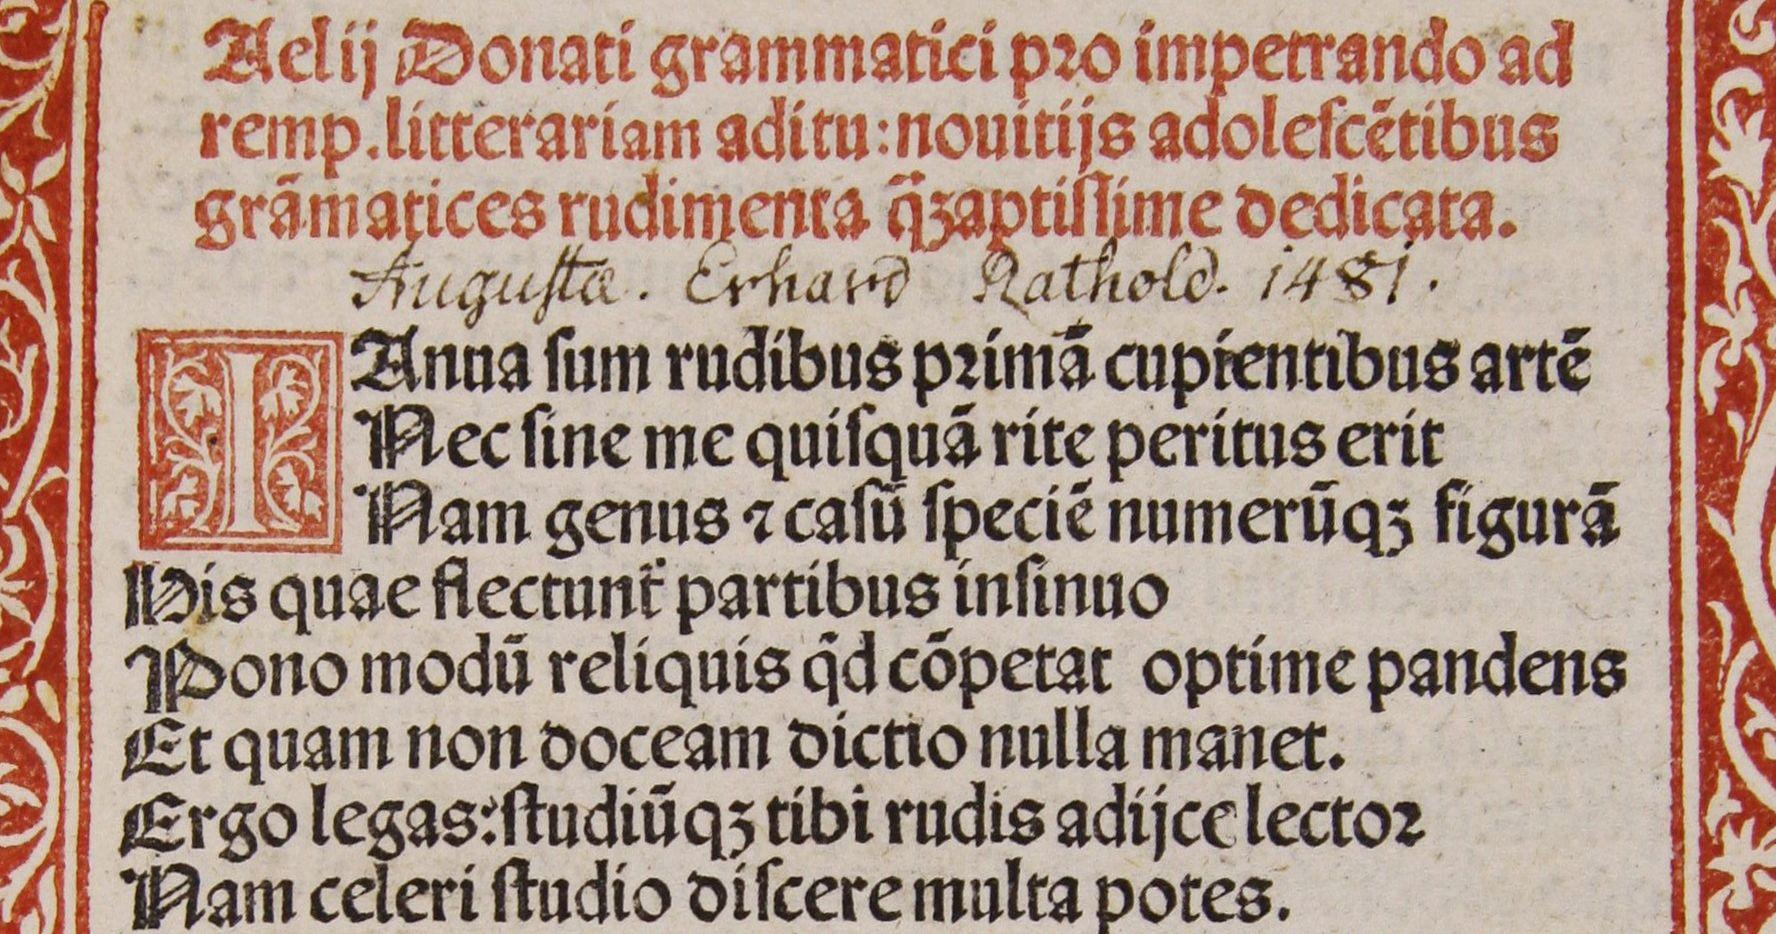 Aelij Donati grammatici pro impetrando ad
remp. litterariam aditu: nouitijs adoleſcētibus
grām̄atices rudimenta q̄ꝫaptiſſime dedicata.
Auguſtæ. Erhard Rathold. 1481.
IAnua ſum rudibus primā cupientibus artē
Nec ſine me quiſquā rite peritus erit
Nam genus ⁊ caſū ſpeciē numerūqꝫ figurā
His quae flectunt᷑ partibus inſinuo
Pono modū reliquis qd̄ cōpetat optime pandens
Et quam non doceam dictio nulla manet.
Ergo legas: ſtudiūqꝫ tibi rudis adijce lector
Nam celeri ſtudio diſcere multa potes.